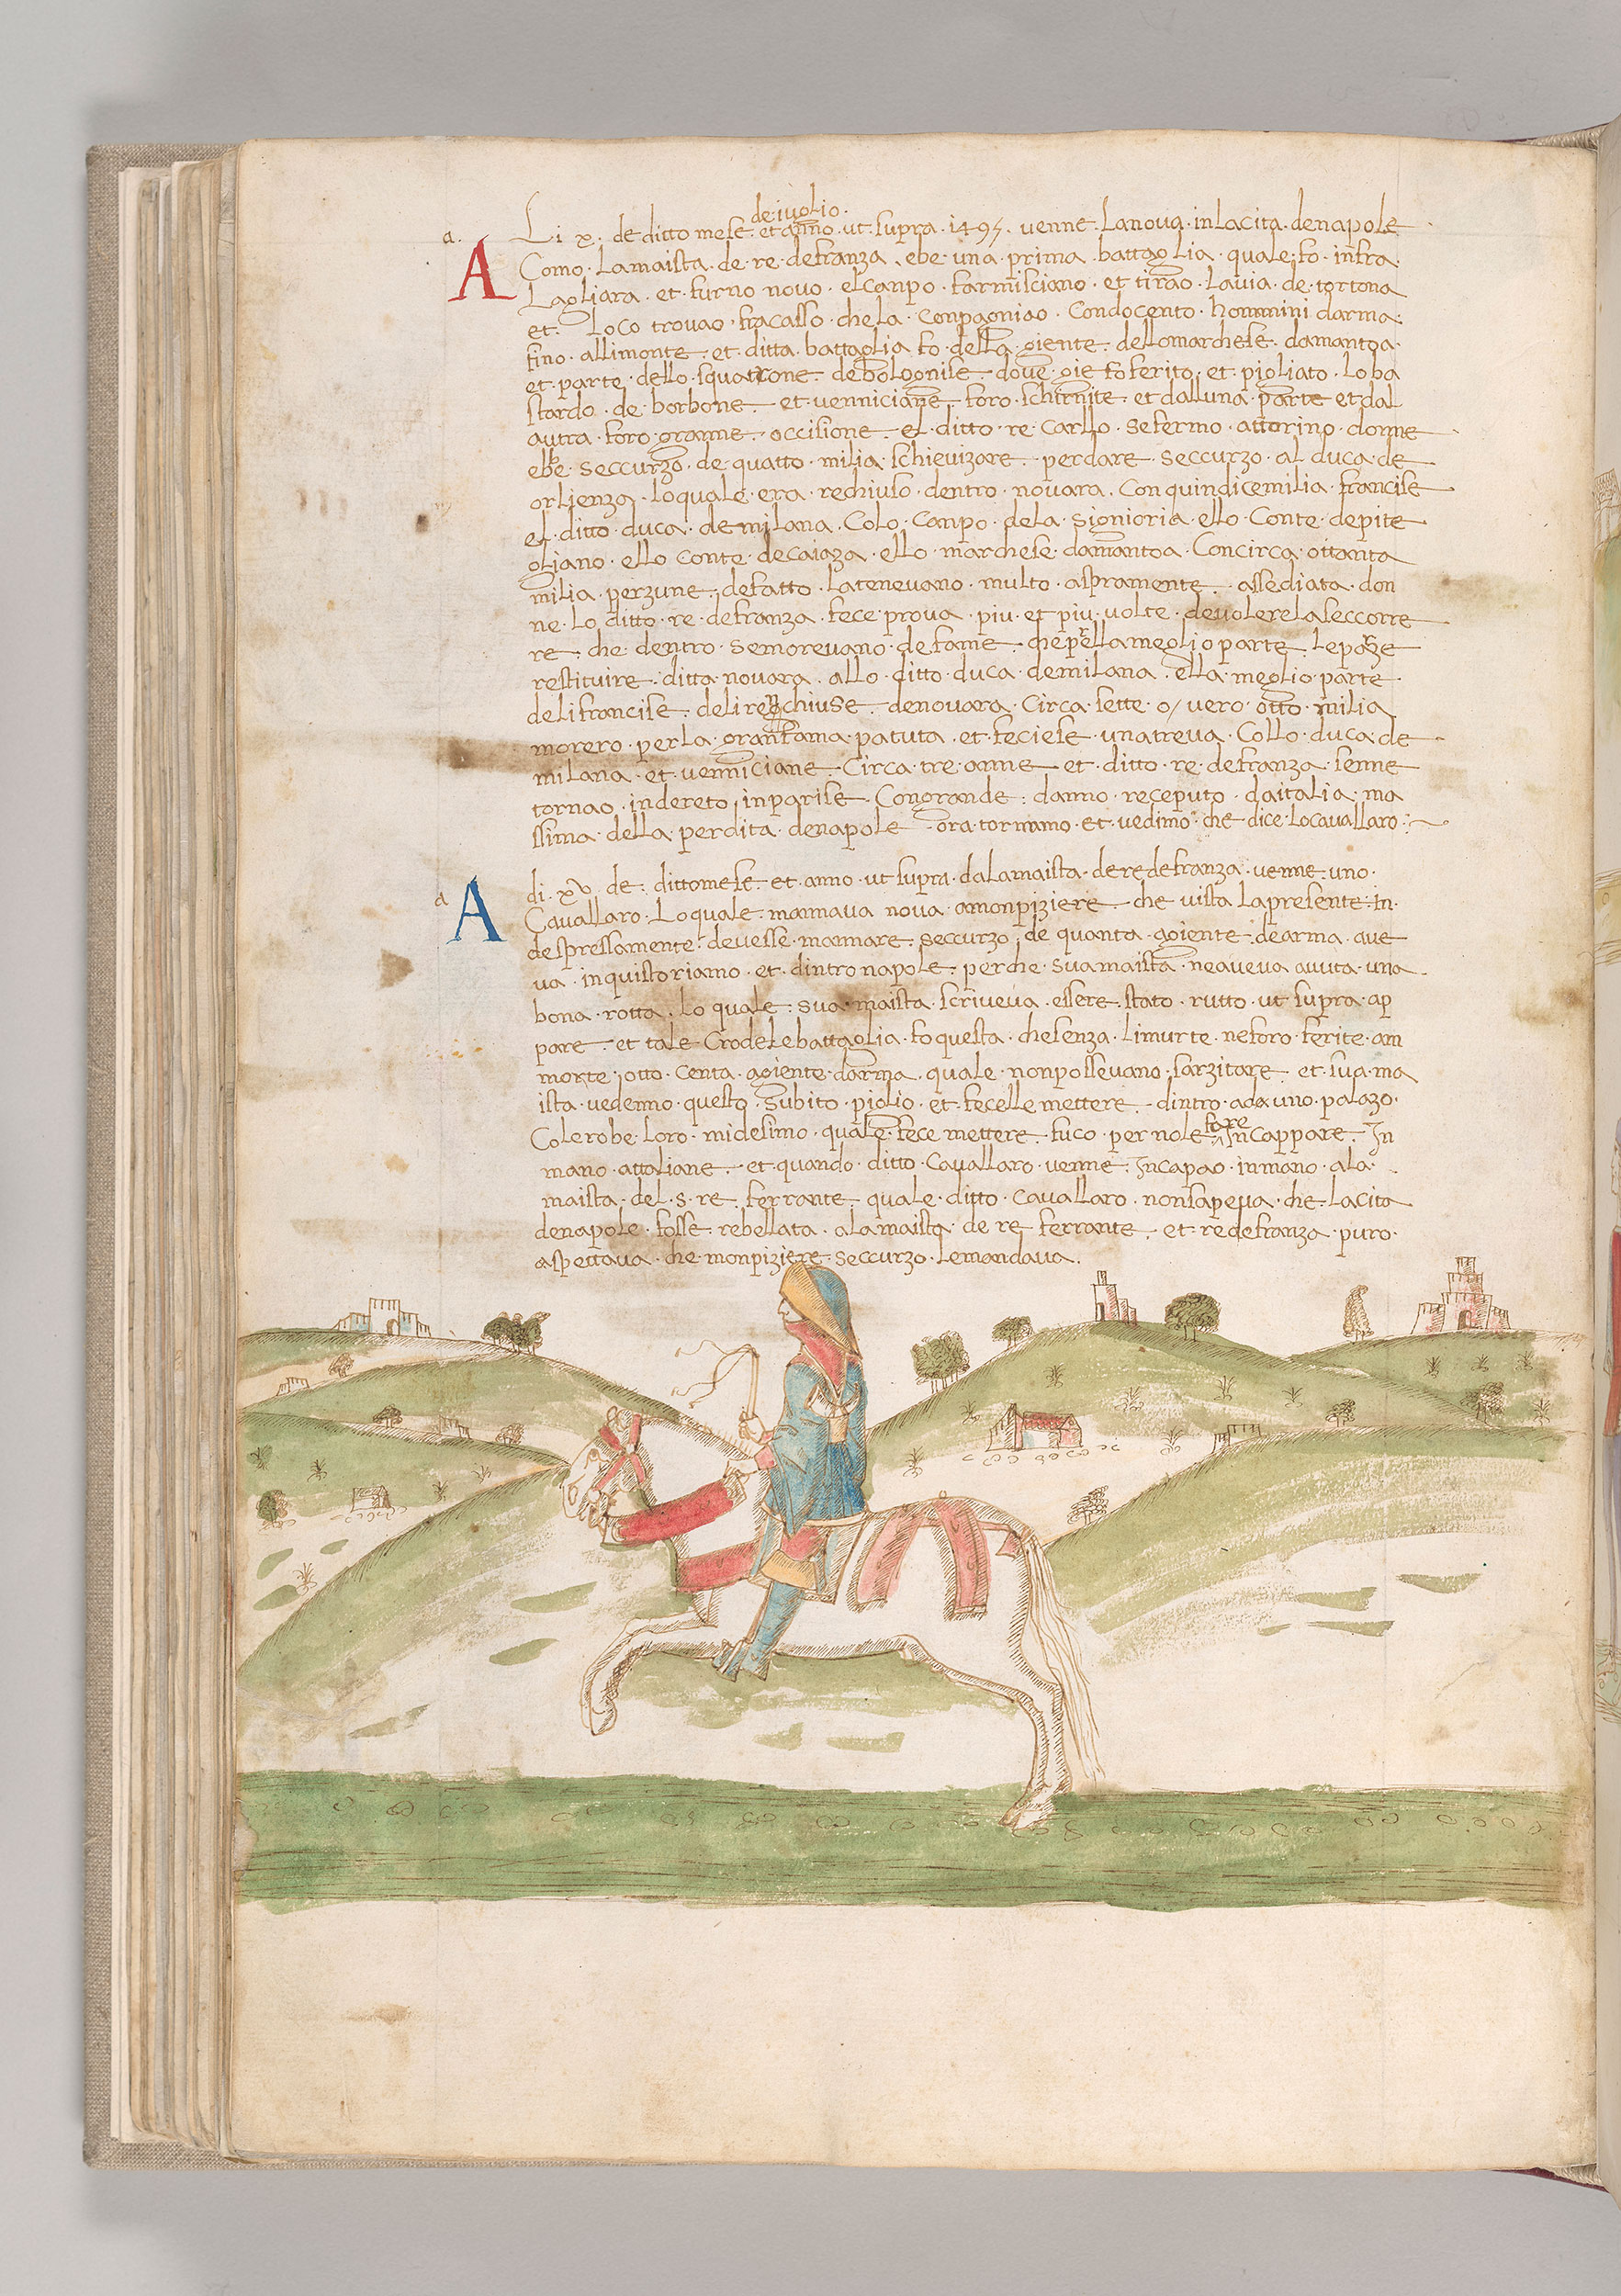 de iuglio
a.
A Li x. de ditto mese et anno ut supra 1495 venne la nova in la cita de napole
Como la maista de re de franza ebe una prima battaglia quale fo infra
Lagliara et furno novo el canpo farmisciano et tirao la via de tortona
et loco trovao fracasso che la conpagniao con docento hommini darma
fino alli monte et ditta battaglia fo della giente dello marchese damantoa
et parte dello squatrone de bolognise dove gie fo ferito et pigliato lo ba
stardo de borbone et venniciane foro schirnite et dall una parte et dal
autra foro granne occisione el ditto re Carllo se fermo att torino donne
ebbe seccurzo de quatto milia schievizare per dare seccurzo al duca de
orlienza lo quale era rechiuso dentro novara con quindice milia francise
el ditto duca de milana colo canpo dela signioria ello conte de pite
gliano ello conte de caiaza ello marchese damantoa con circa ottanta
milia perzune de fatto la tenevano multo aspramente assediata don
ne lo ditto re de franza fece prova piu et piu volte de volerela seccorre
re che dentro se morevano de fame che per ella meglio parte le porze
restituire ditta novara allo ditto duca de milana ella meglio parte
de li francise de li renchiuse de novara circa sette o/ vero otto milia
morero per la gran fama patuta et feciese una treva collo duca de
milana et venniciane circa tre anne et ditto re de franza senne
tornao indereto in parise con grande danno receputo da italia ma
ssima della perdita de napole ora tornamo et vedimo che dice lo cavallaro
a
A di xv de ditto mese et anno ut supra da la maista de re de franza venne uno
Cavallaro lo quale mannava nova a monpiziere che vista la presente in
despressamente devesse mannare seccurzo de quanta agiente de arma ave
va inquistoriamo et dintro napole perche sua maista ne aveva avuta una
bona rotta lo quale sua maista scriveva essere stato rutto ut supra ap
pare et tale crodele battaglia fo questa che senza li murte ne foro ferite am
morte otto centa agiente darma quale non possevano sarzitare et sua ma
ista vedenno questo subito piglio et fecelle mettere dintro ad uno palazo
Cole robe loro midesimo quale fece mettere fuco per nole fare incappare In
mano attaliane et quando ditto cavallaro venne Incapao in mano ala
maista del s. re ferrante quale ditto cavallaro non sapeva che la cita
de napole fosse rebellata ala maista de re ferrante et re de franza puro
aspettava che monpiziere seccurzo le mandava.